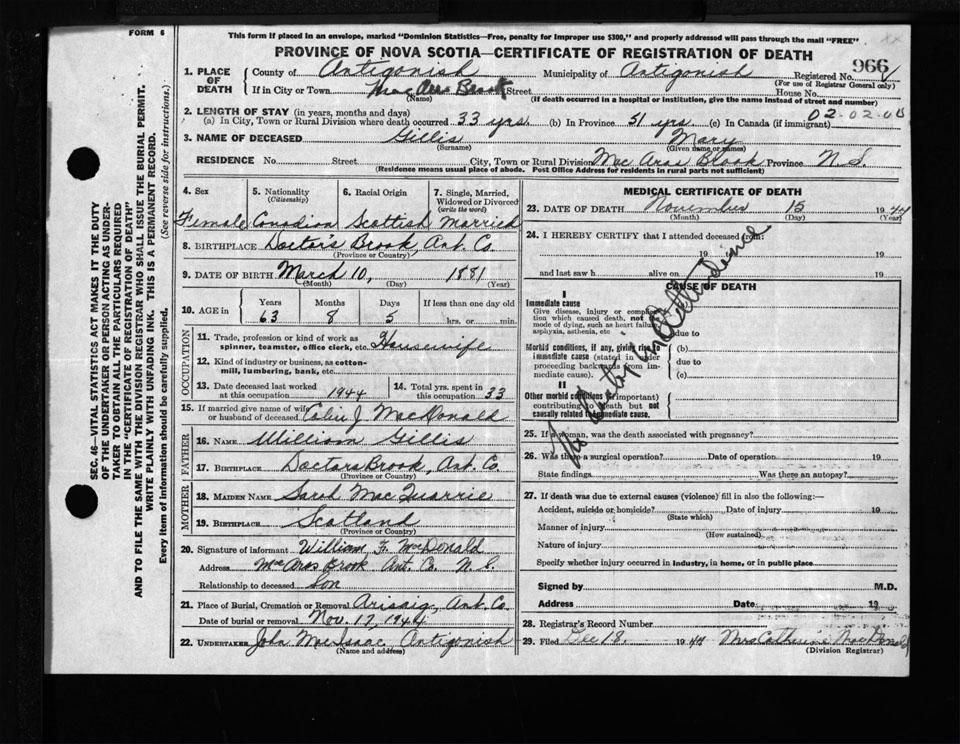 FORM 6
This form if placed in an envelope, marked "Dominion Statistics—Free, penalty for improper use $300," and properly addressed will pass through the mail "FREE"
PROVINCE OF NOVA SCOTIA—CERTIFICATE OF REGISTRATION OF DEATH
1. PLACE OF DEATH County of Antigonish Municipality of Antigonish Registered No. 966
(For use of Registrar General only)
If in City or Town Mac Aras Brook Street House No.
(Name) (If death occurred in a hospital or institution, give the name instead of street and number)
2. LENGTH OF STAY (in years, months and days)
(a) In City, Town or Rural Division where death occurred 33 yrs. (b) In Province 51 yrs (c) In Canada (if immigrant) 02-02-00
3. NAME OF DECEASED Gillis Mary
(Surname) (Given name or names)
RESIDENCE No. Street City, Town or Rural Division Mac Aras Blook Province N.S.
(Residence means usual place of abode. Post Office Address for residents in rural parts not sufficient)
4. Sex 5. Nationality (Citizenship) 6. Racial Origin 7. Single, Married, Widowed or Divorced (write the word)
Female Canadian Scottish Married
8. BIRTHPLACE Doctor's Brook Ant. Co.
(Province or Country)
9. DATE OF BIRTH March 10, 1881
(Month) (Day) (Year)
10. AGE in Years Months Days If less than one day old
63 8 5 hrs. or min.
OCCUPATION
11. Trade, profession or kind of work as spinner, teamster, office clerk, etc. Housewife
12. Kind of industry or business, as cotton-mill, lumbering, bank, etc.
13. Date deceased last worked at this occupation 1944 14. Total yrs. spent in this occupation 33
15. If married give name of wife or husband of deceased Colin J. MacDonald
FATHER
16. NAME William Gillis
17. BIRTHPLACE Doctors Brook, Ant. Co.
(Province or Country)
MOTHER
18. MAIDEN NAME Sarah Mac Quarrie
19. BIRTHPLACE Scotland
(Province or Country)
20. Signature of informant William F. McDonald
Address Mac Aros Brook Ant. Co. N.S.
Relationship to deceased Son
21. Place of Burial, Cremation or Removal Arisaig, Ant. Co.
Date of burial or removal Nov. 17, 1944
22. UNDERTAKER John MacIsaac, Antigonish
(Name and address)
MEDICAL CERTIFICATE OF DEATH
23. DATE OF DEATH November 15 1944
(Month) (Day) (Year)
24. I HEREBY CERTIFY that I attended deceased from:
19 to 19
and last saw h alive on 19
CAUSE OF DEATH
I
Immediate cause
Give disease, injury or complication which caused death, not the mode of dying, such as heart failure, asphyxia, asthenia, etc
due to
Morbid conditions, if any, giving rise to immediate cause (stated in order proceeding backwards from immediate cause).
(b)
due to
(c)
II
Other morbid conditions (if important) contributing to death but not causally related to immediate cause.
No Doctor in Attendance
25. If a woman, was the death associated with pregnancy?
26. Was there a surgical operation? Date of operation 19
State findings Was there an autopsy?
27. If death was due to external causes (violence) fill in also the following:—
Accident, suicide or homicide? Date of injury 19
(State which)
Manner of injury
(How sustained)
Nature of injury
Specify whether injury occurred in industry, in home, or in public place
Signed by M.D.
Address Date 19
28. Registrar's Record Number
29. Filed Dec 18 1944 Mrs Catherine MacDonald
(Division Registrar)
SEC. 46—VITAL STATISTICS ACT MAKES IT THE DUTY
OF THE UNDERTAKER OR PERSON ACTING AS UNDER-
TAKER TO OBTAIN ALL THE PARTICULARS REQUIRED
IN THE "CERTIFICATE OF REGISTRATION OF DEATH"
AND TO FILE THE SAME WITH THE DIVISION REGISTRAR WHO SHALL ISSUE THE BURIAL PERMIT.
WRITE PLAINLY WITH UNFADING INK. THIS IS A PERMANENT RECORD.
Every item of information should be carefully supplied. (See reverse side for instructions.)